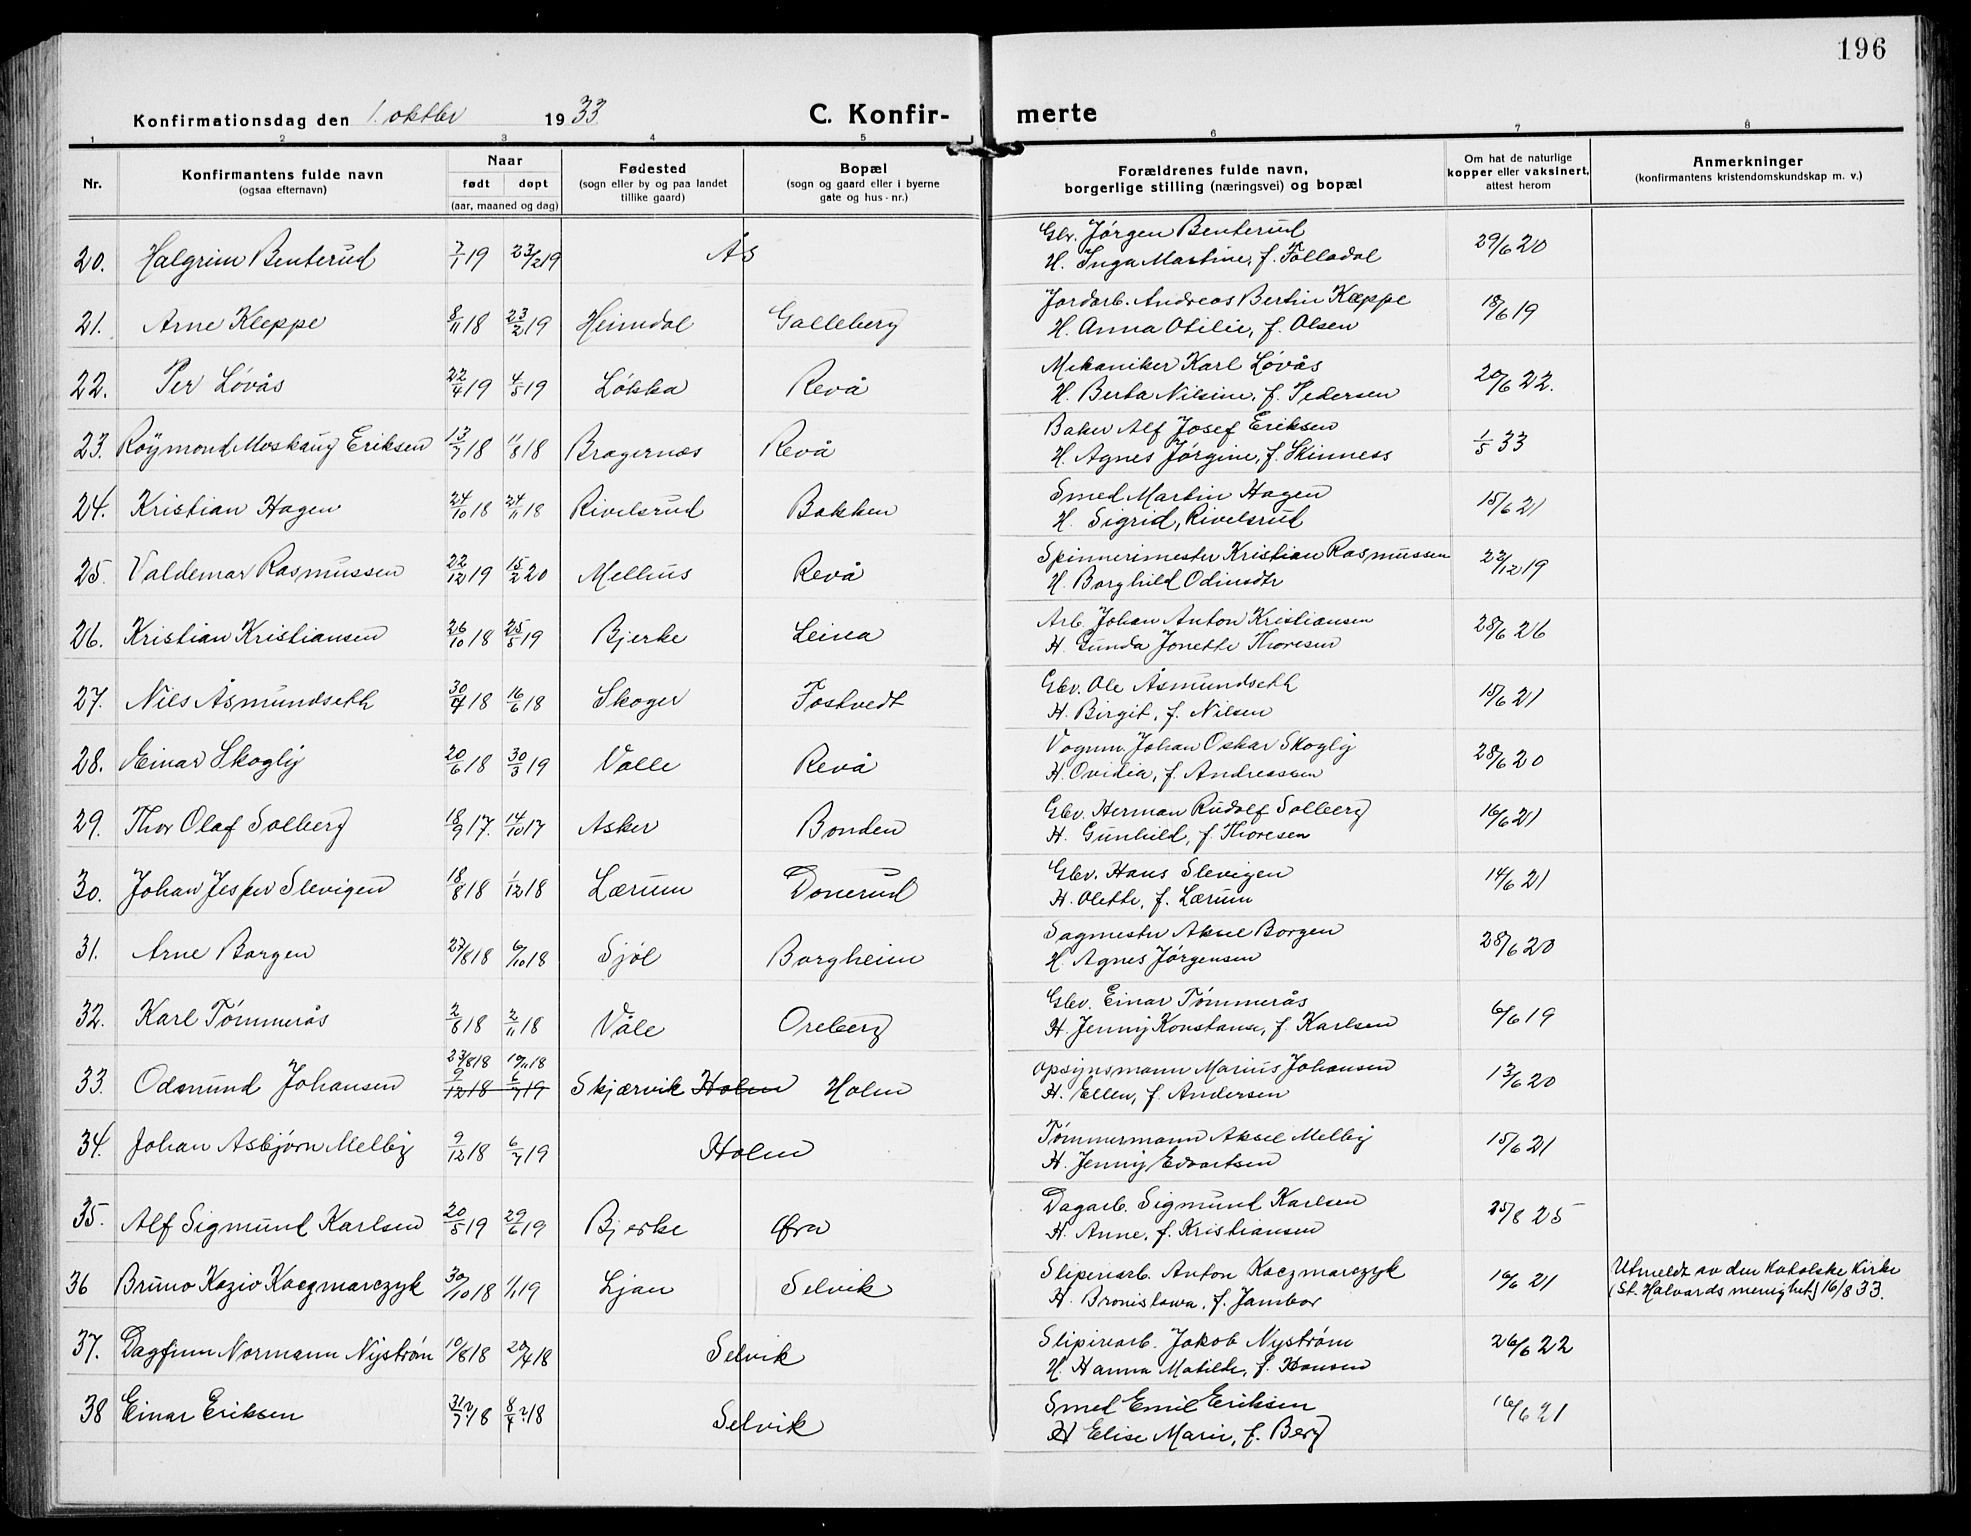 196
Konfirmationsdag den 1. oktbr 1933 C. Konfir- merte
1 2 3 4 5 6 7 8
Nr. Konfirmantens fulde navn (ogsaa efternavn) Naar født døpt (aar, maaned og dag) Fødested (sogn eller by og paa landet tillike gaard) Bopæl (sogn og gaard eller i byerne gate og hus-nr.) Forældrenes fulde navn, borgerlige stilling (næringsvei) og bopæl Om hat de naturlige kopper eller vaksinert, attest herom Anmerkninger (konfirmantens kristendomskundskap m. v.)
20. Halgrim Benterud 7/1 19 23/2 19 Ås Gbr. Jørgen Benterud 29/6 20
H. Inga Martine, f. Tolladal
21. Arne Kleppe 8/11 18 23/2 19 Heimdal Galleberg Jordarb. Andreas Bertin Kleppe 18/6 19
H. Anna Otilie, f. Olsen
22. Per Løvås 22/4 19 4/5 19 Løkka Revå Mekaniker Karl Løvås 20/6 22.
H. Berta Nilsine, f. Pedersen
23. Røymond Moskaug Eriksen 13/7 18 11/8 18 Bragernæs Revå Baker Alf Josef Eriksen 1/5 33
H. Agnes Jørgine, f. Skinness
24. Kristian Hagen 24/10 18 24/11 18 Rivelsrud Bakken Smed Martin Hagen 15/6 21
H. Sigrid, Rivelsrud
25. Valdemar Rasmussen 22/12 19 15/2 20 Melhus Revå Spinnerimester Kristian Rasmussen 22/12 19
H. Borghild Odinsdtr
26. Kristian Kristiansen 26/10 18 25/5 19 Bjerke Leina Arb. Johan Anton Kristiansen 28/6 26
H. Gunda Jonette Thoresen
27. Nils Åsmundseth 30/4 18 16/6 18 Skoger Fostvedt Gbr. Ole Åsmundseth 15/6 21
H. Birgit, f. Nilsen
28. Einar Skogly 20/6 18 30/3 19 Valle Revå Vognm. Johan Oskar Skogly 28/6 20
H. Ovidia, f. Andreassen
29. Thor Olaf Solberg 18/9 17. 14/10 17 Asker Bonden Gbr. Herman Rudolf Solberg 16/6 21
H. Gunhild, f. Thoresen
30. Johan Jesper Slevigen 18/8 18 1/12 18 Lærum Donerud Gbr. Hans Slevigen 14/6 21
H. Olette, f. Lærum
31. Arne Borgen 27/8 18 6/10 18 Sjøl Borgheim Sagmester Aksel Borgen 28/6 20
H. Agnes Jørgensen
32. Karl Tømmerås 2/8 18 2/11 18 Våle Oreberg Gbr. Einar Tømmerås 6/6 19
H. Jenny Konstanse, f. Karlsen
23/8 18 10/11 18
33. Odmund Johansen 9/12 18 6/7 19 Skjærvik Holm Holm Opsynsmann Marius Johansen 13/6 20
H. Ellen, f. Andersen
34. Johan Asbjørn Melby 9/12 18 6/7 19 Holm Tømmermann Aksel Melby 15/6 21
H. Jenny Edvartsen
35. Alf Sigmund Karlsen 20/5 19 29/6 19 Bjerke Øra Dagarb. Sigmund Karlsen 25/8 25
H. Anne, f. Kristiansen
36 Bruno Kazio Kaczmarczyk 30/10 18 1/1 19 Ljan Selvik Sliperiarb. Anton Kaczmarczyk 16/6 21 Utmeldt av den katolske kirke
H. Bronislawa, f. Jambor (St. Halvards menighet) 16/8 33.
37. Dagfinn Normann Nystrøm 10/8 18 20/4 18 Selvik Sliperiarb. Jakob Nystrøm 26/6 22
H. Hanna Matilde, f. Hansen
38 Einar Eriksen 31/7 18 8/7 18 Selvik Smed Emil Eriksen 16/6 21
H Elise Marie, f. Berg